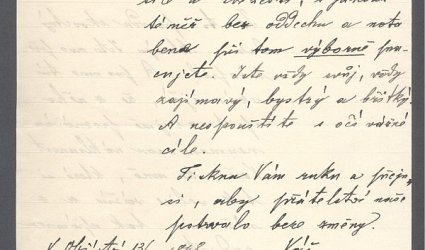 téměř bez oddechu a nota
bene při tom výborně pra-
cujete. Jste vždy svůj, vždy
zajímavý, bystrý a břitký.
A nespouštíte s očí vážné
cíle.
Tisknu Vám ruku a přeju
si, aby přátelství naše
potrvalo beze změny.
V
Váš